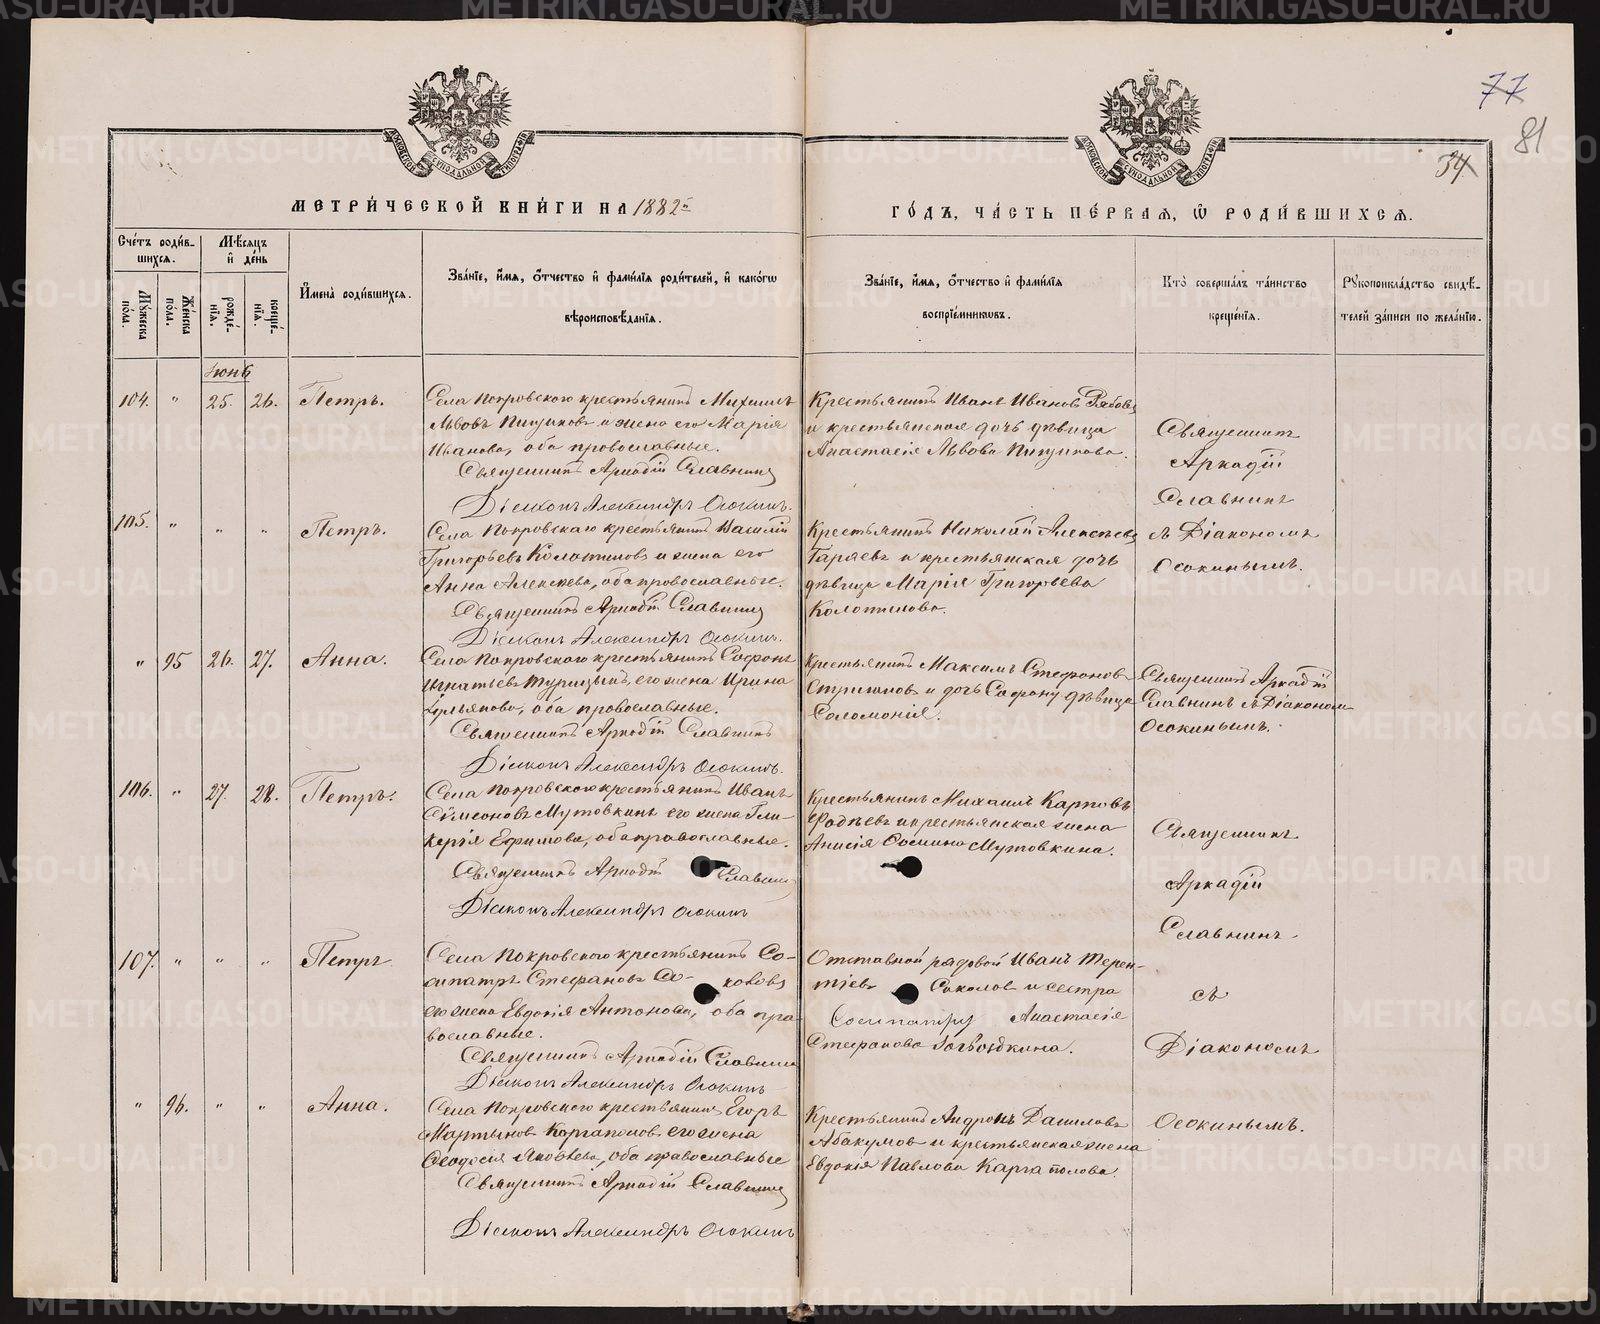 77
81
34
МЕТРИ́ЧЕСКОЙ КНИ́ГИ НА 1882й
ГО́ДЪ, ЧА́СТЬ ПЕ́РВАЯ, Ѽ РОДИ́ВШИХСЯ.
Сче́тъ роди́в-
шихся.
Мѣ́сяцъ
и҆ де́нь
Мꙋ́жеска
по́ла.
Же́нска
по́ла.
рожде́-
нїѧ.
креще́-
нїѧ.
И҆мена̀ роди́вшихся.
Зва́нїе, и҆́мѧ, ѻ҆́тчество и҆ фами́лїѧ роди́телей, и҆ како́гѡ
вѣроисповѣ́данїѧ.
Зва́нїе, и҆́мѧ, ѻ҆́тчество и҆ фами́лїѧ
воспрїе́мниковъ.
Кто̀ соверша́лъ та́инство
креще́нїѧ.
Рꙋкоприкла́дство свидѣ́-
телей за́писи по жела́нїю.
Іюнь
104. " 25. 26. Петръ.
Села Покровскаго крестьянинъ Михаилъ
Львовъ Пищиковъ и жена его Марія
Иванова, оба православные.
Священникъ Аркадій Славнинъ
Діаконъ Александръ Осокинъ.
Крестьянинъ Иванъ Ивановъ Рябовъ
и крестьянская дочь дѣвица
Анастасія Львова Пищикова.
Священникъ
Аркадій
Славнинъ
съ Діакономъ
Осокинымъ.
105. " " " Петръ.
Села Покровскаго крестьянинъ Василій
Григорьевъ Колотиловъ и жена его
Анна Алексѣева, оба православные.
Священникъ Аркадій Славнинъ
Діаконъ Александръ Осокинъ.
Крестьянинъ Николай Алексѣевъ
Гаряевъ и крестьянская дочь
дѣвица Марія Григорьева
Колотилова.
" 95 26. 27. Анна.
Села Покровскаго крестьянинъ Софонъ
Игнатьевъ Турицынъ, его жена Ирина
Ульянова, оба православные.
Священникъ Аркадій Славнинъ
Діаконъ Александръ Осокинъ.
Крестьянинъ Максимъ Стефановъ
Стригановъ и дочь Софону дѣвица
Соломонія.
Священникъ Аркадій
Славнинъ съ Діакономъ
Осокинымъ.
106. " 27. 28. Петръ.
Села Покровскаго крестьянинъ Иванъ
Сѵмеоновъ Мутовкинъ его жена Гли-
керія Ефимова, оба православные.
Священникъ Аркадій Славнинъ
Діаконъ Александръ Осокинъ
Крестьянинъ Михаилъ Карповъ
Фадѣевъ и крестьянская жена
Анисія Сосина Мутовкина.
Священникъ
Аркадій
Славнинъ
съ
Діакономъ
Осокинымъ.
107. " " " Петръ
Села Покровскаго крестьянинъ Со-
сипатръ Стефановъ Со- коловъ
его жена Евдокія Антонова, оба пра-
вославные.
Священникъ Аркадій Славнинъ
Діаконъ Александръ Осокинъ
Отставной рядовой Иванъ Терен-
тіевъ Соколовъ и сестра
Сосипатру Анастасія
Стефанова Загвоздкина.
" 96. " " Анна.
Села Покровскаго крестьянинъ Егоръ
Мартыновъ Каргаполовъ его жена
Ѳеодосія Яковлева, оба православные
Священникъ Аркадій Славнинъ
Діаконъ Александръ Осокинъ
Крестьянинъ Андронъ Даниловъ
Абакумовъ и крестьянская жена
Евдокія Павлова Каргаполова.
METRIKI.GASO-URAL.RU